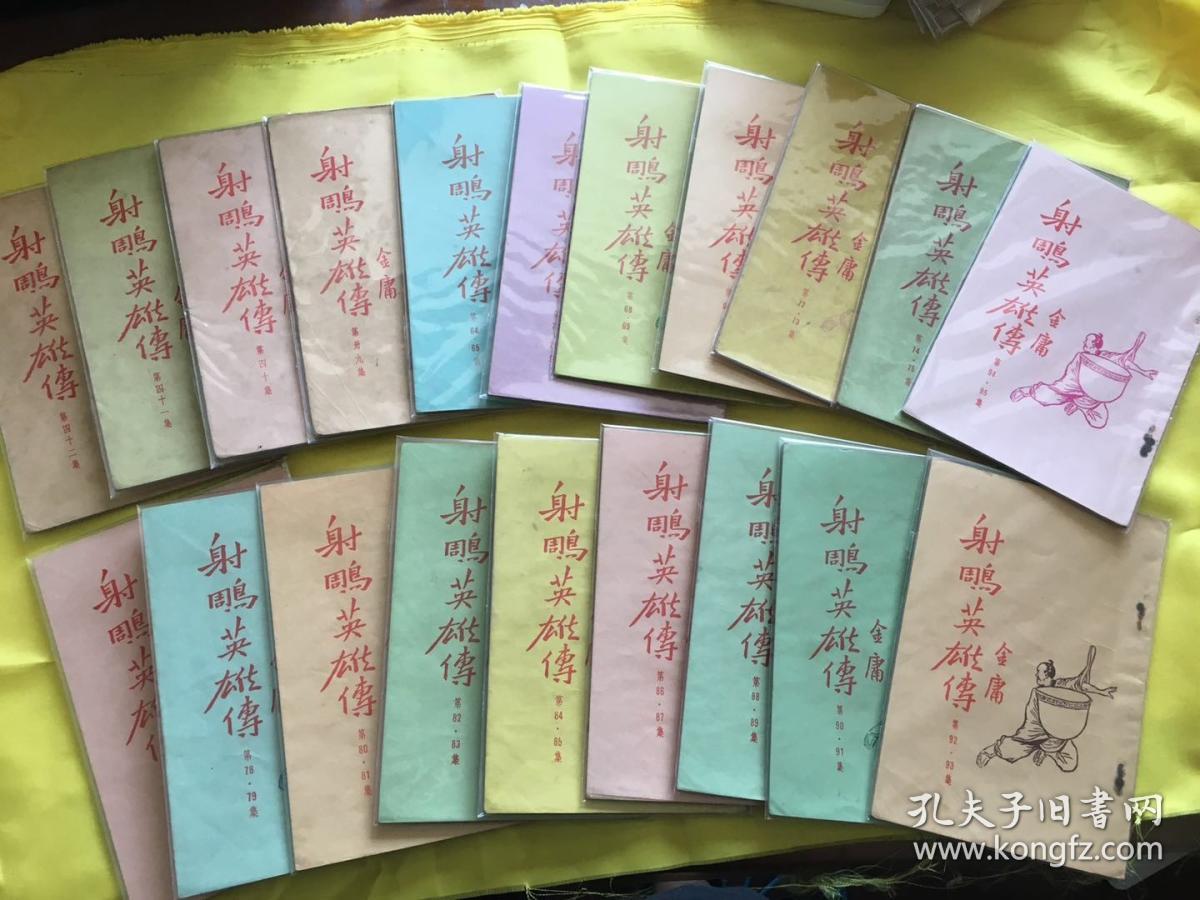 射鵰英雄傳
第四十二集
射鵰英雄傳
第四十一集
射鵰英雄傳
第四十集
射鵰英雄傳
金庸
第卅九集
射鵰英雄傳
第64·65集
射鵰英
射鵰英雄傳
金庸
第68·69集
射鵰英雄傳
射鵰英雄傳
金庸
射鵰英雄傳
第74·75集
射鵰英雄傳
金庸
第94·95集
射鵰英雄
射鵰英雄傳
第78·79集
射鵰英雄傳
第80·81集
射鵰英雄傳
第82·83集
射鵰英雄傳
第84·85集
射鵰英雄傳
第86·87集
射鵰英雄傳
第88·89集
射鵰英雄傳
金庸
第90·91集
射鵰英雄傳
金庸
第92·93集
孔夫子旧書网
www.kongfz.com